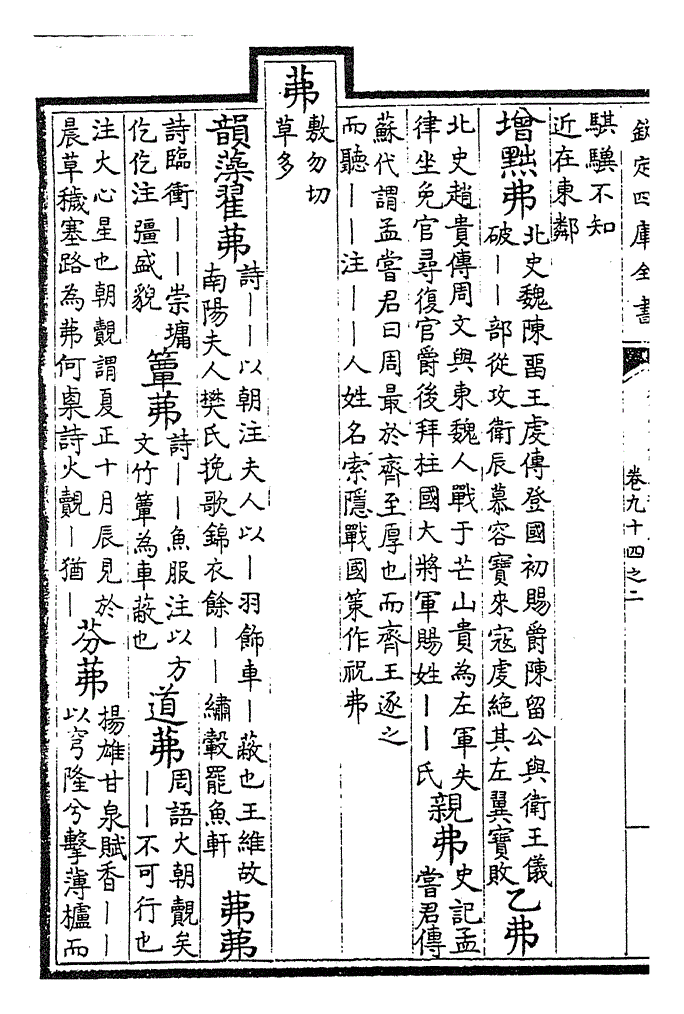 欽定四庫全書
卷九十四之二
騏驥不知
近在東鄰
增黜弗
北史魏陳畱王虔傳登國初賜爵陳留公與衛王儀
破丨丨部從攻衛辰慕容寶來寇虔絕其左翼寶敗
乙弗
北史趙貴傳周文與東魏人戰于芒山貴為左軍失
律坐免官尋復官爵後拜柱國大將軍賜姓丨丨氏
親弗
史記孟
嘗君傳
蘇代謂孟嘗君曰周最於齊至厚也而齊王逐之
而聽丨丨注丨丨人姓名索隱戰國策作祝弗
茀
敷勿切
草多
韻藻翟茀
詩丨丨以朝注夫人以丨羽飾車丨蔽也王維故
南陽夫人樊氏挽歌錦衣餘丨丨繡轂罷魚軒
茀茀
詩臨衝丨丨崇墉
仡仡注彊盛貌
簟茀
詩丨丨魚服注以方
文竹簟為車蔽也
道茀
周語火朝覿矣
丨丨不可行也
注大心星也朝覿謂夏正十月辰見於
晨草穢塞路為茀何㮚詩火覿丨猶丨
芬茀
揚雄甘泉賦香丨丨
以穹隆兮擊薄櫨而